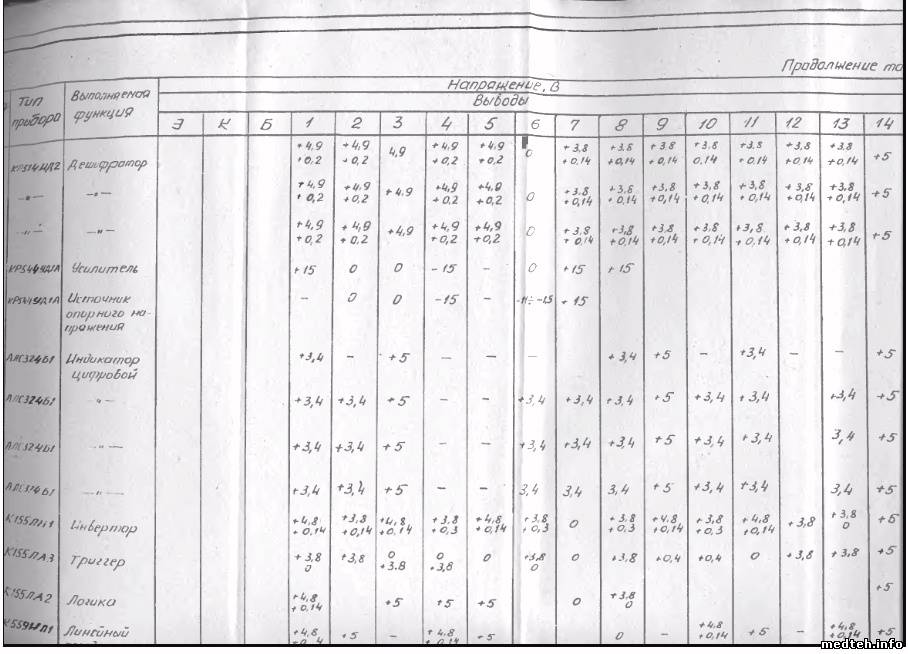 Продолжение та
Тип прибора Выполняемая функция Напряжение, В
Выводы
Э К Б 1 2 3 4 5 6 7 8 9 10 11 12 13 14
КР514ИД2 Дешифратор +4,9 +0,2 +4,9 +0,2 4,9 +4,9 +0,2 +4,9 +0,2 0 +3,8 +0,14 +3,8 +0,14 +3,8 +0,14 +3,8 0,14 +3,8 +0,14 +3,8 +0,14 +3,8 +0,14 +5
—"— —"— +4,9 +0,2 +4,9 +0,2 +4,9 +4,9 +0,2 +4,9 +0,2 0 +3,8 +0,14 +3,8 +0,14 +3,8 +0,14 +3,8 +0,14 +3,8 +0,14 +3,8 +0,14 +3,8 +0,14 +5
—"— —"— +4,9 +0,2 +4,9 +0,2 +4,9 +4,9 +0,2 +4,9 +0,2 0 +3,8 +0,14 +3,8 +0,14 +3,8 +0,14 +3,8 +0,14 +3,8 +0,14 +3,8 +0,14 +3,8 +0,14 +5
Усилитель +15 0 0 -15 – 0 +15 +15
Источник опорного на-
пряжения – 0 0 -15 – +15
АЛС324Б1 Индикатор цифровой +3,4 – +5 – – – +3,4 +5 – +3,4 – – +5
АЛС324Б1 —"— +3,4 +3,4 +5 – – +3,4 +3,4 +3,4 +5 +3,4 +3,4 +3,4 +5
АЛС324Б1 —"— +3,4 +3,4 +5 – – +3,4 +3,4 +3,4 +5 +3,4 +3,4 3,4 +5
АЛС324Б1 —"— +3,4 +3,4 +5 – – 3,4 3,4 3,4 +5 +3,4 +3,4 3,4 +5
К155ЛН1 Инвертор +4,8 +0,14 +3,8 +0,14 +4,8 +0,14 +3,8 +0,3 +4,8 +0,14 +3,8 +0,3 0 +3,8 +0,3 +4,8 +0,14 +3,8 +0,3 +4,8 +0,14 +3,8 +3,8 0 +5
К155ЛА3 Триггер +3,8 0 +3,8 0 +3.8 0 +3,8 0 +3,8 0 0 +3,8 +0,4 +0,4 0 +3,8 +3,8 +5
К155ЛА2 Логика +4,8 +0,14 +5 +5 +5 0 +3,8 0 +5
Линейный +4,8 +0,14 +5 – +4,8 +0,14 +5 0 – +4,8 +0,14 +5 – +4,8 +0,14 +5
medteh.info